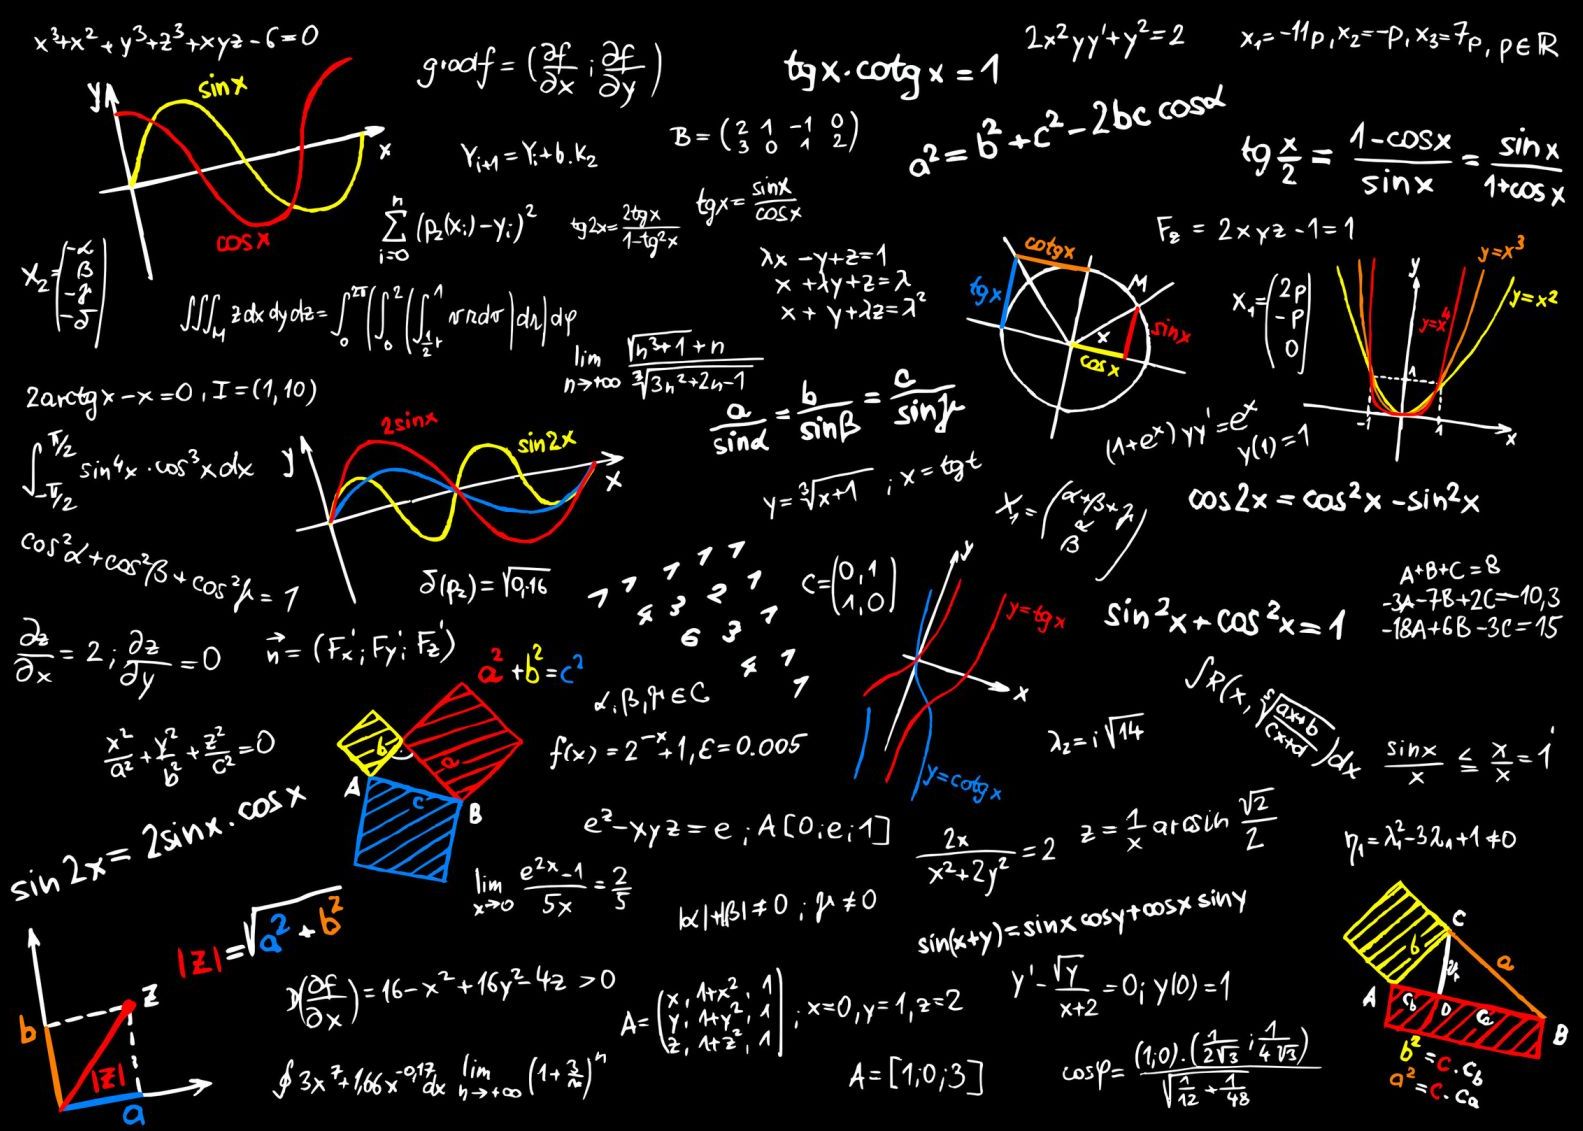 x³+x²+y³+z³+xyz-6=0
gradf = (∂f/∂x ; ∂f/∂y)
tgx·cotgx = 1
2x²yy'+y²=2
x₁=-11p, x₂=-p, x₃=7p, p∈ℝ
y
sinx
x
cosx
Yᵢ₊₁ = Yᵢ+b·K₂
B = (2 1 -1 0
3 0 1 2)
a² = b²+c²-2bc cosα
tg x/2 = (1-cosx)/sinx = sinx/(1+cosx)
X₂=(-α
β
-γ
-δ)
∑ i=0 n (p₂(xᵢ)-yᵢ)²
tg2x = 2tgx/(1-tg²x)
tgx = sinx/cosx
λx -y+z=1
x +λy+z=λ
x + y+λz=λ²
cotgx
tgx
M
x
sinx
cosx
F_z = 2xyz-1=1
X₁=(2p
-p
0)
y
y=x³
y=x²
y=x⁴
1
-1
1
x
∭_M zdxdydz = ∫₀^2π(∫₀²(∫_½r^1 vrdv)dr)dφ
lim n→+∞ (√(n³+1)+n)/∛(3n²+2n-1)
2arctgx-x=0, I=(1,10)
a/sinα = b/sinβ = c/sinγ
(1+eˣ)yy'=eˣ
y(1)=1
∫_-π/2^π/2 sin⁴x·cos³xdx
y
2sinx
sin2x
x
y = ∛(x+1) ; x=tgt
X₁=(α+β+γ
α
β)
cos2x = cos²x-sin²x
cos²α+cos²β+cos²γ=1
δ(p₂)=√0,16
1 1 1 1 1
4 3 2 1
6 3 1
4 1
1
C=(0,1
1,0)
y
y=tgx
x
y=cotgx
sin²x+cos²x=1
A+B+C=8
-3A-7B+2C=-10,3
-18A+6B-3C=15
∂z/∂x=2; ∂z/∂y=0
n⃗=(Fx'; Fy'; Fz')
a²+b²=c²
α,β,γ∈C
∫R(x, ⁵√((ax+b)/(cx+d)))dx
x²/a²+y²/b²+z²/c²=0
b
a
c
A
B
f(x)=2⁻ˣ+1, ε=0.005
λ₂=i√14
sinx/x ≤ x/x = 1
sin2x=2sinx·cosx
eᶻ-xyz=e ; A[0;e;1]
2x/(x²+2y²)=2
z=1/x arcsin √2/2
η₁=λ₁²-3λ₁+1≠0
lim x→0 (e²ˣ-1)/5x = 2/5
|α|+|β|≠0 ; γ≠0
sin(x+y)=sinx cosy+cosx siny
|z|=√(a²+b²)
b
z
|z|
a
D(∂f/∂x)=16-x²+16y²-4z >0
A=(x, 1+x², 1
y, 1+y², 1
z, 1+z², 1) ; x=0, y=1, z=2
y'-√y/(x+2)=0; y(0)=1
C
b
a
A
c_b
D
c_a
B
b²=c·c_b
a²=c·c_a
∮3x⁷+1,66x^-0,17dx
lim n→+∞ (1+3/n)ⁿ
A=[1;0;3]
cosφ=(1;0)·(1/2√3 ; 1/4√3)/√(1/12+1/48)